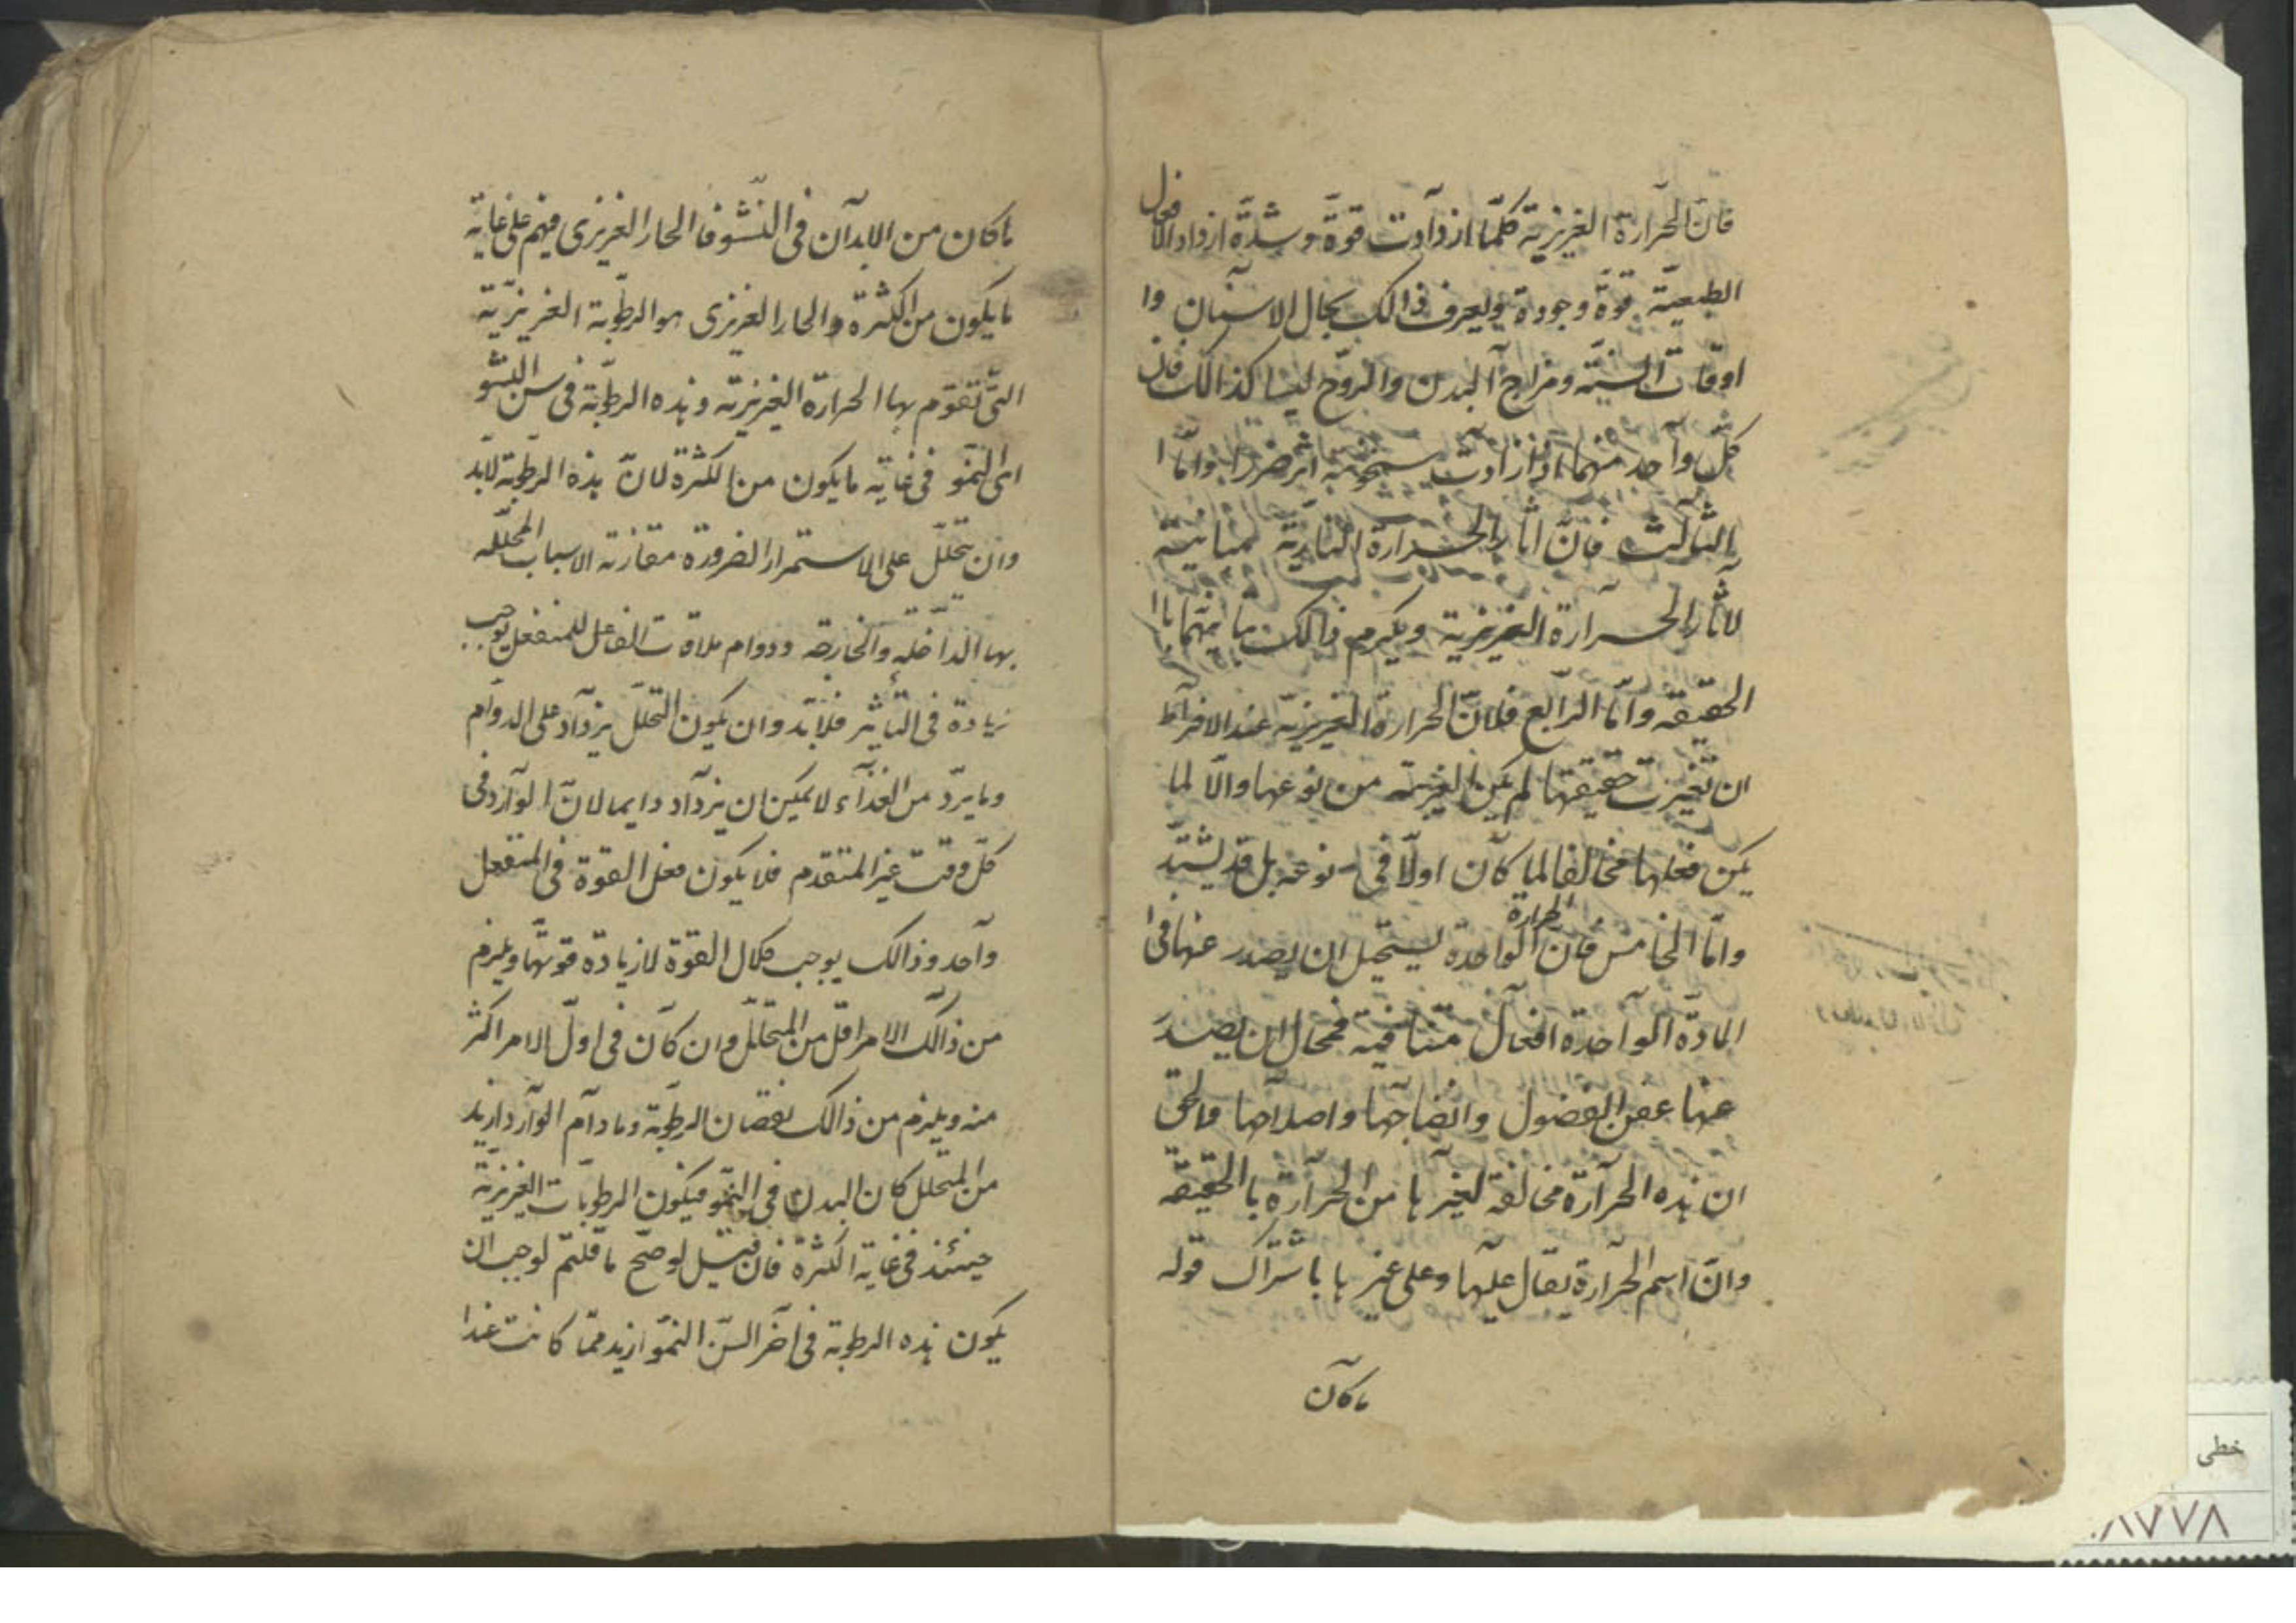 فانّ الحرارة الغريزية كلّما ازدادت قوة وشدّة ازداد الافعال
الطبيعيّة قوة وجودة ويعرف ذالك بحال الاسنان وا
اوقات السنة ومزاج البدن والروح ليسا كذالك فان
كلّ واحد منهما اذا زادت سخونته اثر ضررا وامّا ا
الثالث فانّ اثار الحرارة النارية مباينة
لاثار الحرارة الغريزية ويلزم ذالك تباينهما با
الحقيقه وامّا الرّابع فلانّ الحرارة الغريزية عند الافراط
ان تغيرت حقيقتها لم يكن الغريبة من نوعها والّا لما
يكن فعلها مخالفا لما كان اولا في نوعه بل قد يشتدّ
وامّا الخامس فانّ الحرارة الواحدة يستحيل ان يصدر عنها في ا
المادّة الواحدة افعال متنافية فمحال ان يصدر
عنها عفن الفضول وانضاجها واصلاحها والحق
ان هذه الحرارة مخالفة لغيرها من الحرارة با الحقيقة
وانّ اسم الحرارة يقال عليها وعلى غيرها باشتراك قوله
ماكان
ماكان من الابدان في النشو فا الحار الغريزى فيهم على غاية
مايكون من الكثرة والحار الغريزى هو الرطوبة الغريزيّة
التى تقوم بها الحرارة الغريزية وهذه الرطوبة في سن النشو
اى النمو في غاية مايكون من الكثرة لانّ هذه الرطوبة لابد
وان تحلّل على الاستمرار الضرورة مقارنة الاسباب المحلّله
بها الداخليه والخارجه ودوام ملاقات الفاعل للمنفعل يوجب
زيادة في التأثير فلابّد وان يكون التحلّل يزداد على الدوام
وما يردّ من الغذاء لايمكن ان يزداد دايما لانّ الوارد في
كلّ وقت غير المتقدم فلا يكون فعل القوة في المنفعل
واحد وذالك يوجب كلال القوة لازيادة قوتها ويلزم
من ذالك الامر اقل من المتحلّل وان كان في اوّل الامر اكثر
منه ويلزم من ذالك نقصان الرطوبة وما دام الوارد ازيد
من المتحلل كان البدن في النمّو فيكون الرطوبات الغريزيّة
حينئذ في غاية الكثرة فان قيل لو صحّ ما قلتم لوجب ان
يكون هذه الرطوبة في آخر السنّ النمّو ازيد ممّا كانت عندا
خطى
٨٧٧٨